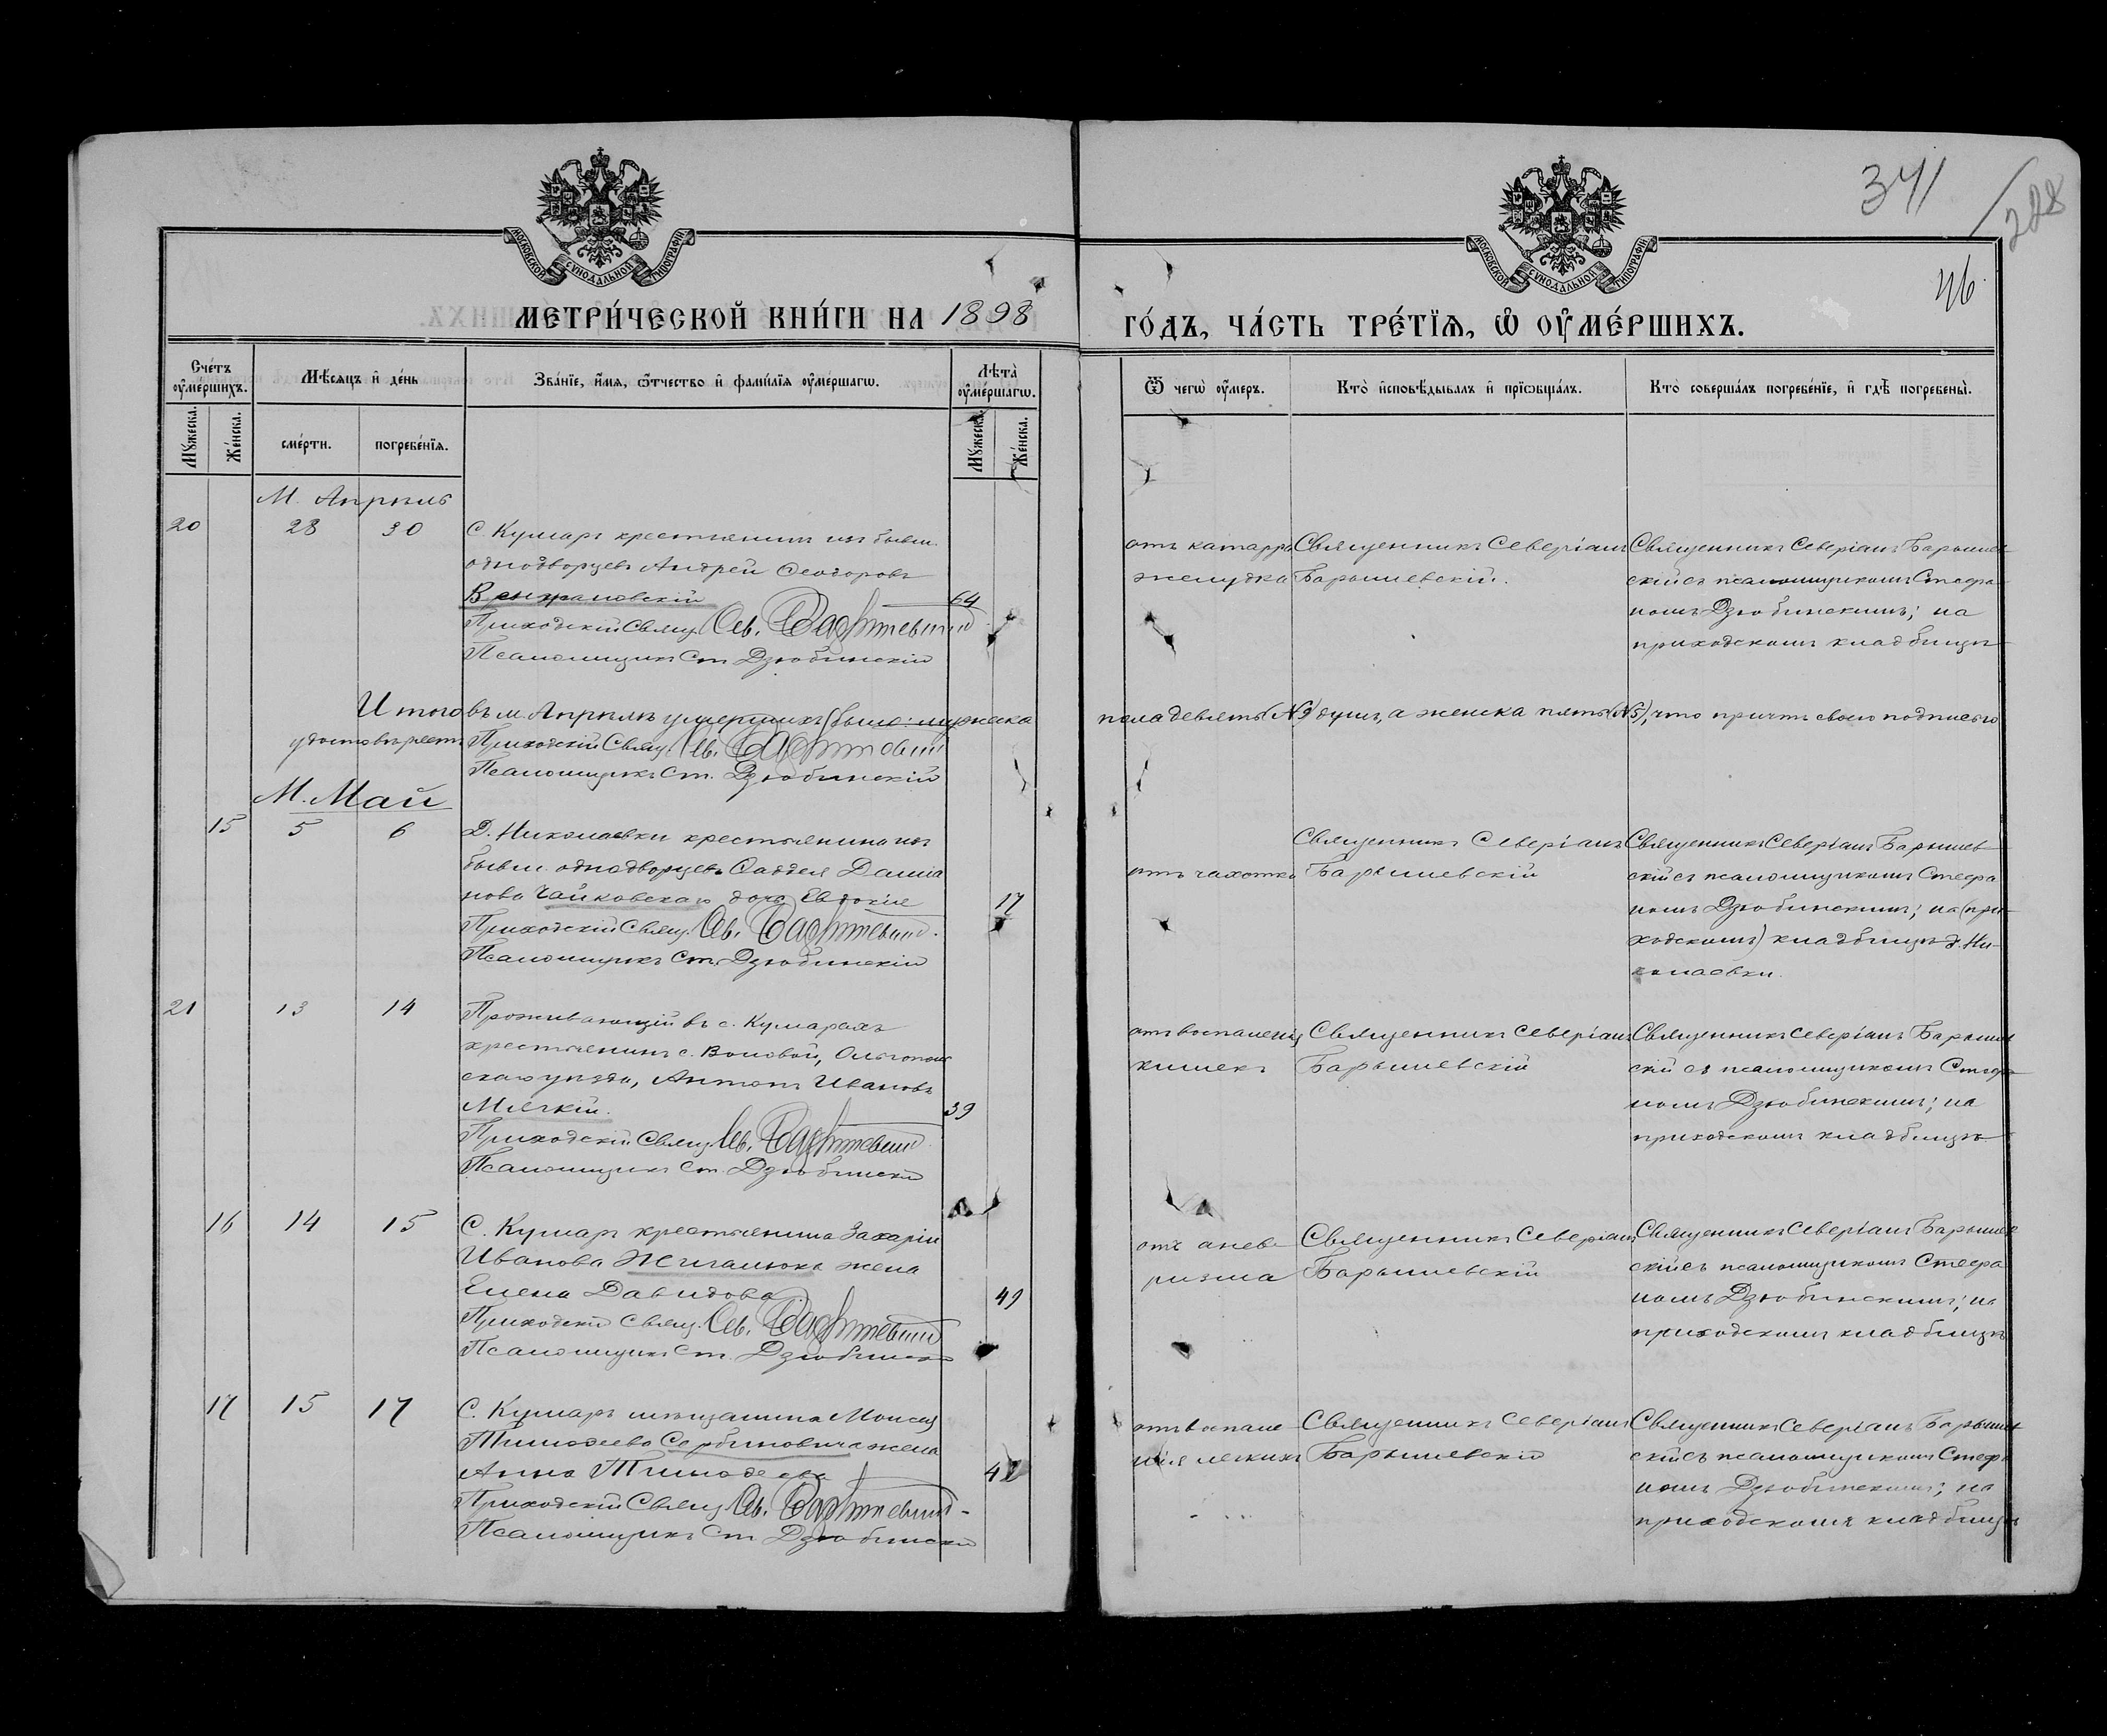 341
228
46
МОСКОВСКОЙ СУНОДАЛЬНОЙ ТИПОГРАФІИ
МОСКОВСКОЙ СУНОДАЛЬНОЙ ТИПОГРАФІИ
МЕТРИ́ЧЕСКОЙ КНИ́ГИ НА 1898
ГО́ДЪ, ЧА́СТЬ ТРЕ́ТЇѦ, Ѡ҆ ОУ҆МЕ́РШИХЪ.
Сче́тъ оу҆ме́ршихъ.
Мѣ́сѧцъ и҆ де́нь
Зва́нїе, и҆́мѧ, ѻ҆́тчество и҆ фами́лїѧ оу҆ме́ршагѡ.
Лѣ́та оу҆ме́ршагѡ.
Ѿ чегѡ̀ оу҆́меръ.
Кто̀ и҆сповѣ́дывалъ и҆ прїѡбща́лъ.
Кто̀ соверша́лъ погребе́нїе, и҆ гдѣ̀ погребены̀.
Мꙋ́жеска.
Же́нска.
сме́рти.
погребе́нїѧ.
Мꙋ́жеска.
Же́нска.
М. Апрѣль
20 28 30
С Кумаръ крестьянинъ изъ бывш.
однодворцевъ Андрей Ѳеодоровъ
64
Приходскій Свящ. Сев. Барышевскій
Псаломщикъ Ст Дзюбинскій
отъ катарра
желудка
Священникъ Северіанъ
Барышевскій.
Священникъ Северіанъ Барышев
скій съ псаломщикомъ Стефа
номъ Дзюбинскимъ; на
приходскомъ кладбищѣ
Итого въ м. Апрѣлѣ умершихъ было: мужеска пола девять (№ 9) душъ, а женска пять (№ 5), что причтъ своею подписью
удостовѣряетъ Приходскій Свящ. Сев. Барышевскій
Псаломщикъ Ст. Дзюбинскій
М. Май
15 5 6
Д. Николаевки крестьянина изъ
бывш. однодворцевъ Ѳаддея Даміа
нова Чайковскаго дочь Евдокія
17
Приходскій Свящ. Сев. Барышевскій
Псаломщикъ Ст. Дзюбинскій
отъ чахотки
Священникъ Северіанъ
Барышевскій
Священникъ Северіанъ Барышев
скій съ псаломщикомъ Стефа
номъ Дзюбинскимъ; на (при
ходскомъ) кладбищѣ д. Ни-
колаевки.
21 13 14
Проживающій въ с. Кумарахъ
крестьянинъ с. Воловой, Ольгополь
скаго уѣзда, Антонъ Ивановъ
Мягкій.
39
Приходскій Свящ. Сев. Барышевскій
Псаломщикъ Ст Дзюбинскій
отъ воспаленія
кишекъ
Священникъ Северіанъ
Барышевскій
Священникъ Северіанъ Барышев
скій съ псаломщикомъ Стефа
номъ Дзюбинскимъ; на
приходскомъ кладбищѣ
16 14 15
С. Кумаръ крестьянина Захарія
Иванова Жигалюка жена
Елена Давидова
49
Приходскій Свящ. Сев. Барышевскій
Псаломщикъ Ст. Дзюбинскій
отъ анев
ризма
Священникъ Северіанъ
Барышевскій
Священникъ Северіанъ Барышев
скій съ псаломщикомъ Стефа
номъ Дзюбинскимъ; на
приходскомъ кладбищѣ
17 15 17
С. Кумаръ мѣщанина Моисея
Тимоѳеева Сербиновича жена
Анна Тимоѳеева
Приходскій Свящ. Сев. Барышевскій
Псаломщикъ Ст Дзюбинскій
отъ воспале
нія легкихъ
Священникъ Северіанъ
Барышевскій
Священникъ Северіанъ Барышев
скій съ псаломщикомъ Стефа
номъ Дзюбинскимъ; на
приходскомъ кладбищѣ